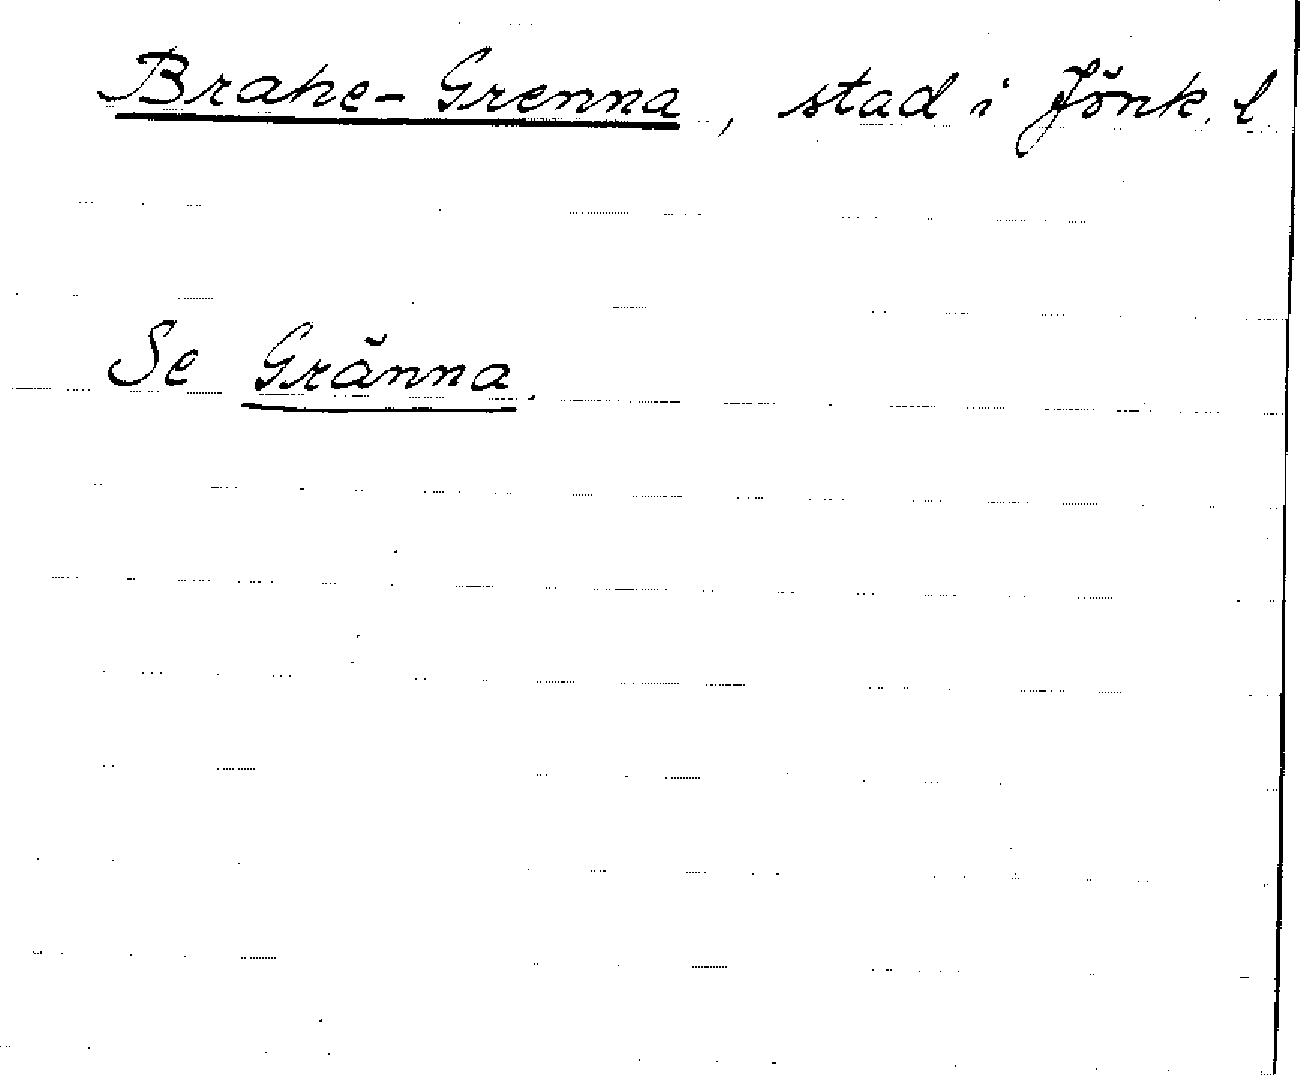 Brahe-Grenna, stad i Jönk. l
Se Gränna.